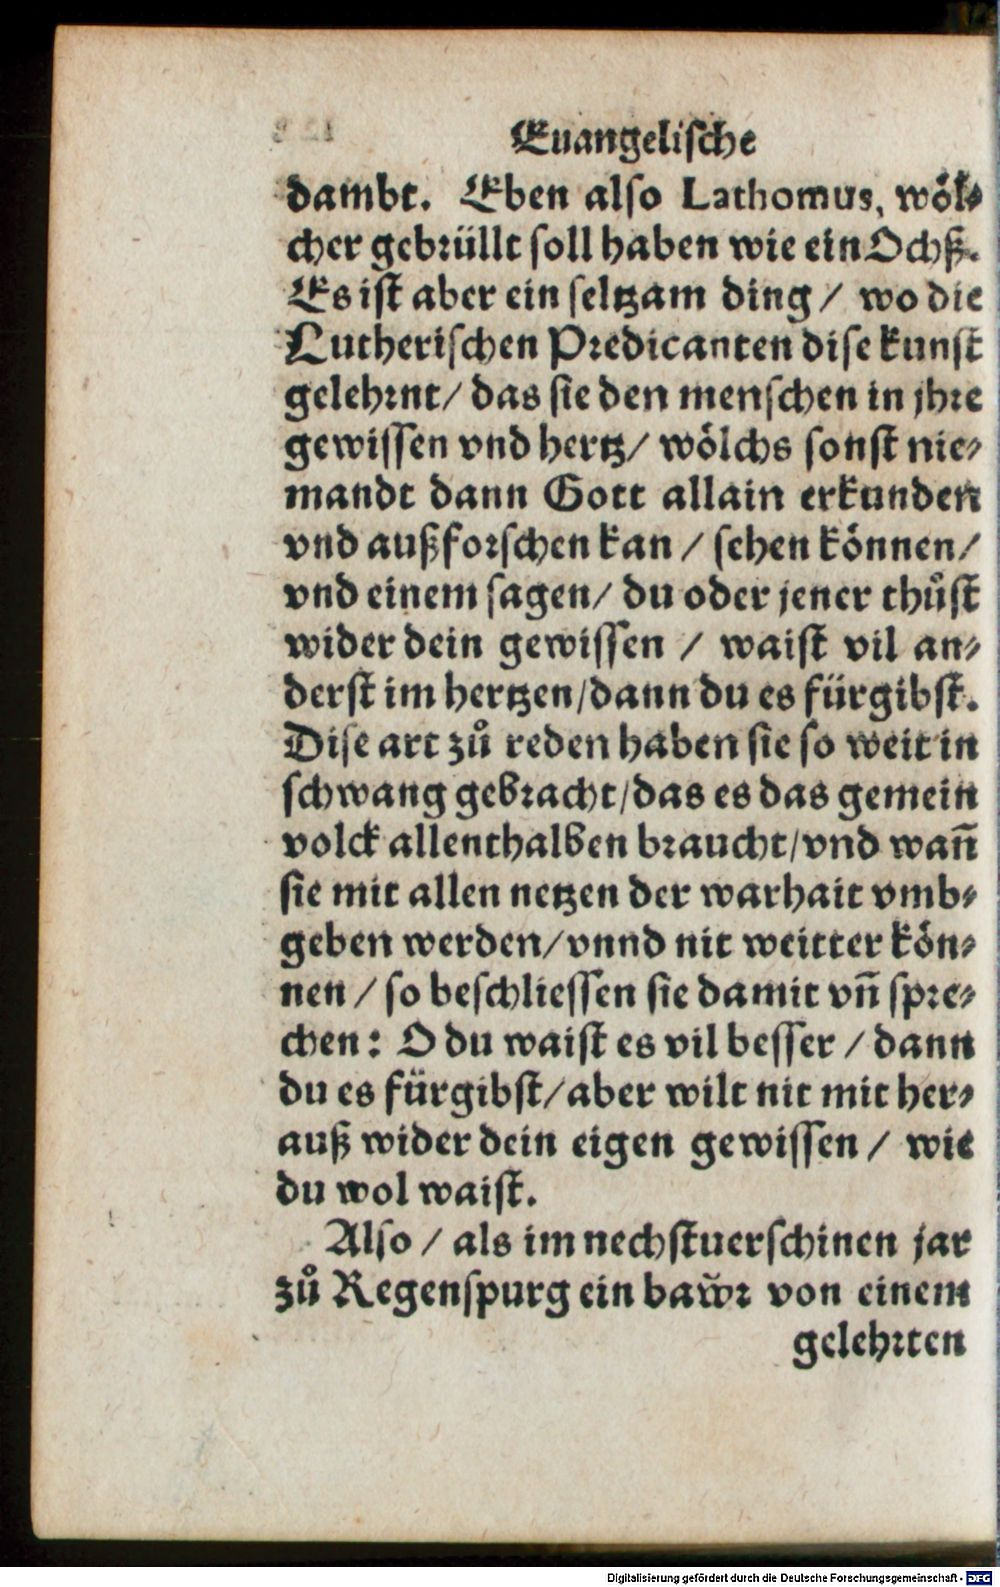 Euangelische
dambt. Eben also Lathomus, wöl⸗
cher gebrüllt soll haben wie ein Ochß.
Es ist aber ein seltzam ding / wo die
Lutherischen Predicanten dise kunst
gelehrnt / das sie den menschen in jhre
gewissen vnd hertz / wölchs sonst nie⸗
mandt dann Gott allain erkunden
vnd außforschen kan / sehen können /
vnd einem sagen / du oder jener thůst
wider dein gewissen / waist vil an⸗
derst im hertzen / dann du es fürgibst.
Dise art zů reden haben sie so weit in
schwang gebracht / das es das gemein
volck allenthalben braucht / vnd wañ
sie mit allen netzen der warhait vmb⸗
geben werden / vnnd nit weitter kön⸗
nen / so beschliessen sie damit vñ spre⸗
chen: O du waist es vil besser / dann
du es fürgibst / aber wilt nit mit her⸗
auß wider dein eigen gewissen / wie
du wol waist.
Also / als im nechstuerschinen jar
zů Regenspurg ein baw̃r von einem
gelehrten
Digitalisierung gefördert durch die Deutsche Forschungsgemeinschaft - DFG